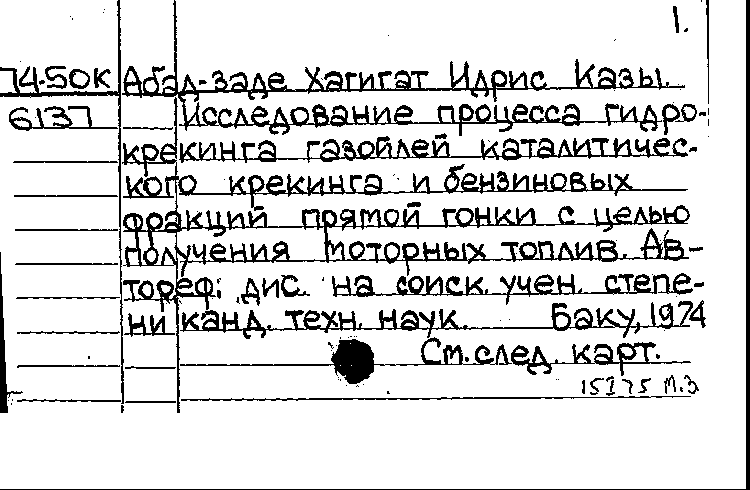 1.
74-50К Абад-заде Хагигат Идрис Казы.
6137 Исследование процесса гидро-
крекинга газойлей каталитичес-
кого крекинга и бензиновых
фракций прямой гонки с целью
получения моторных топлив. Ав-
тореф. дис. на соиск. учен. степе-
ни канд. техн. наук. Баку, 1974
См. след. карт.